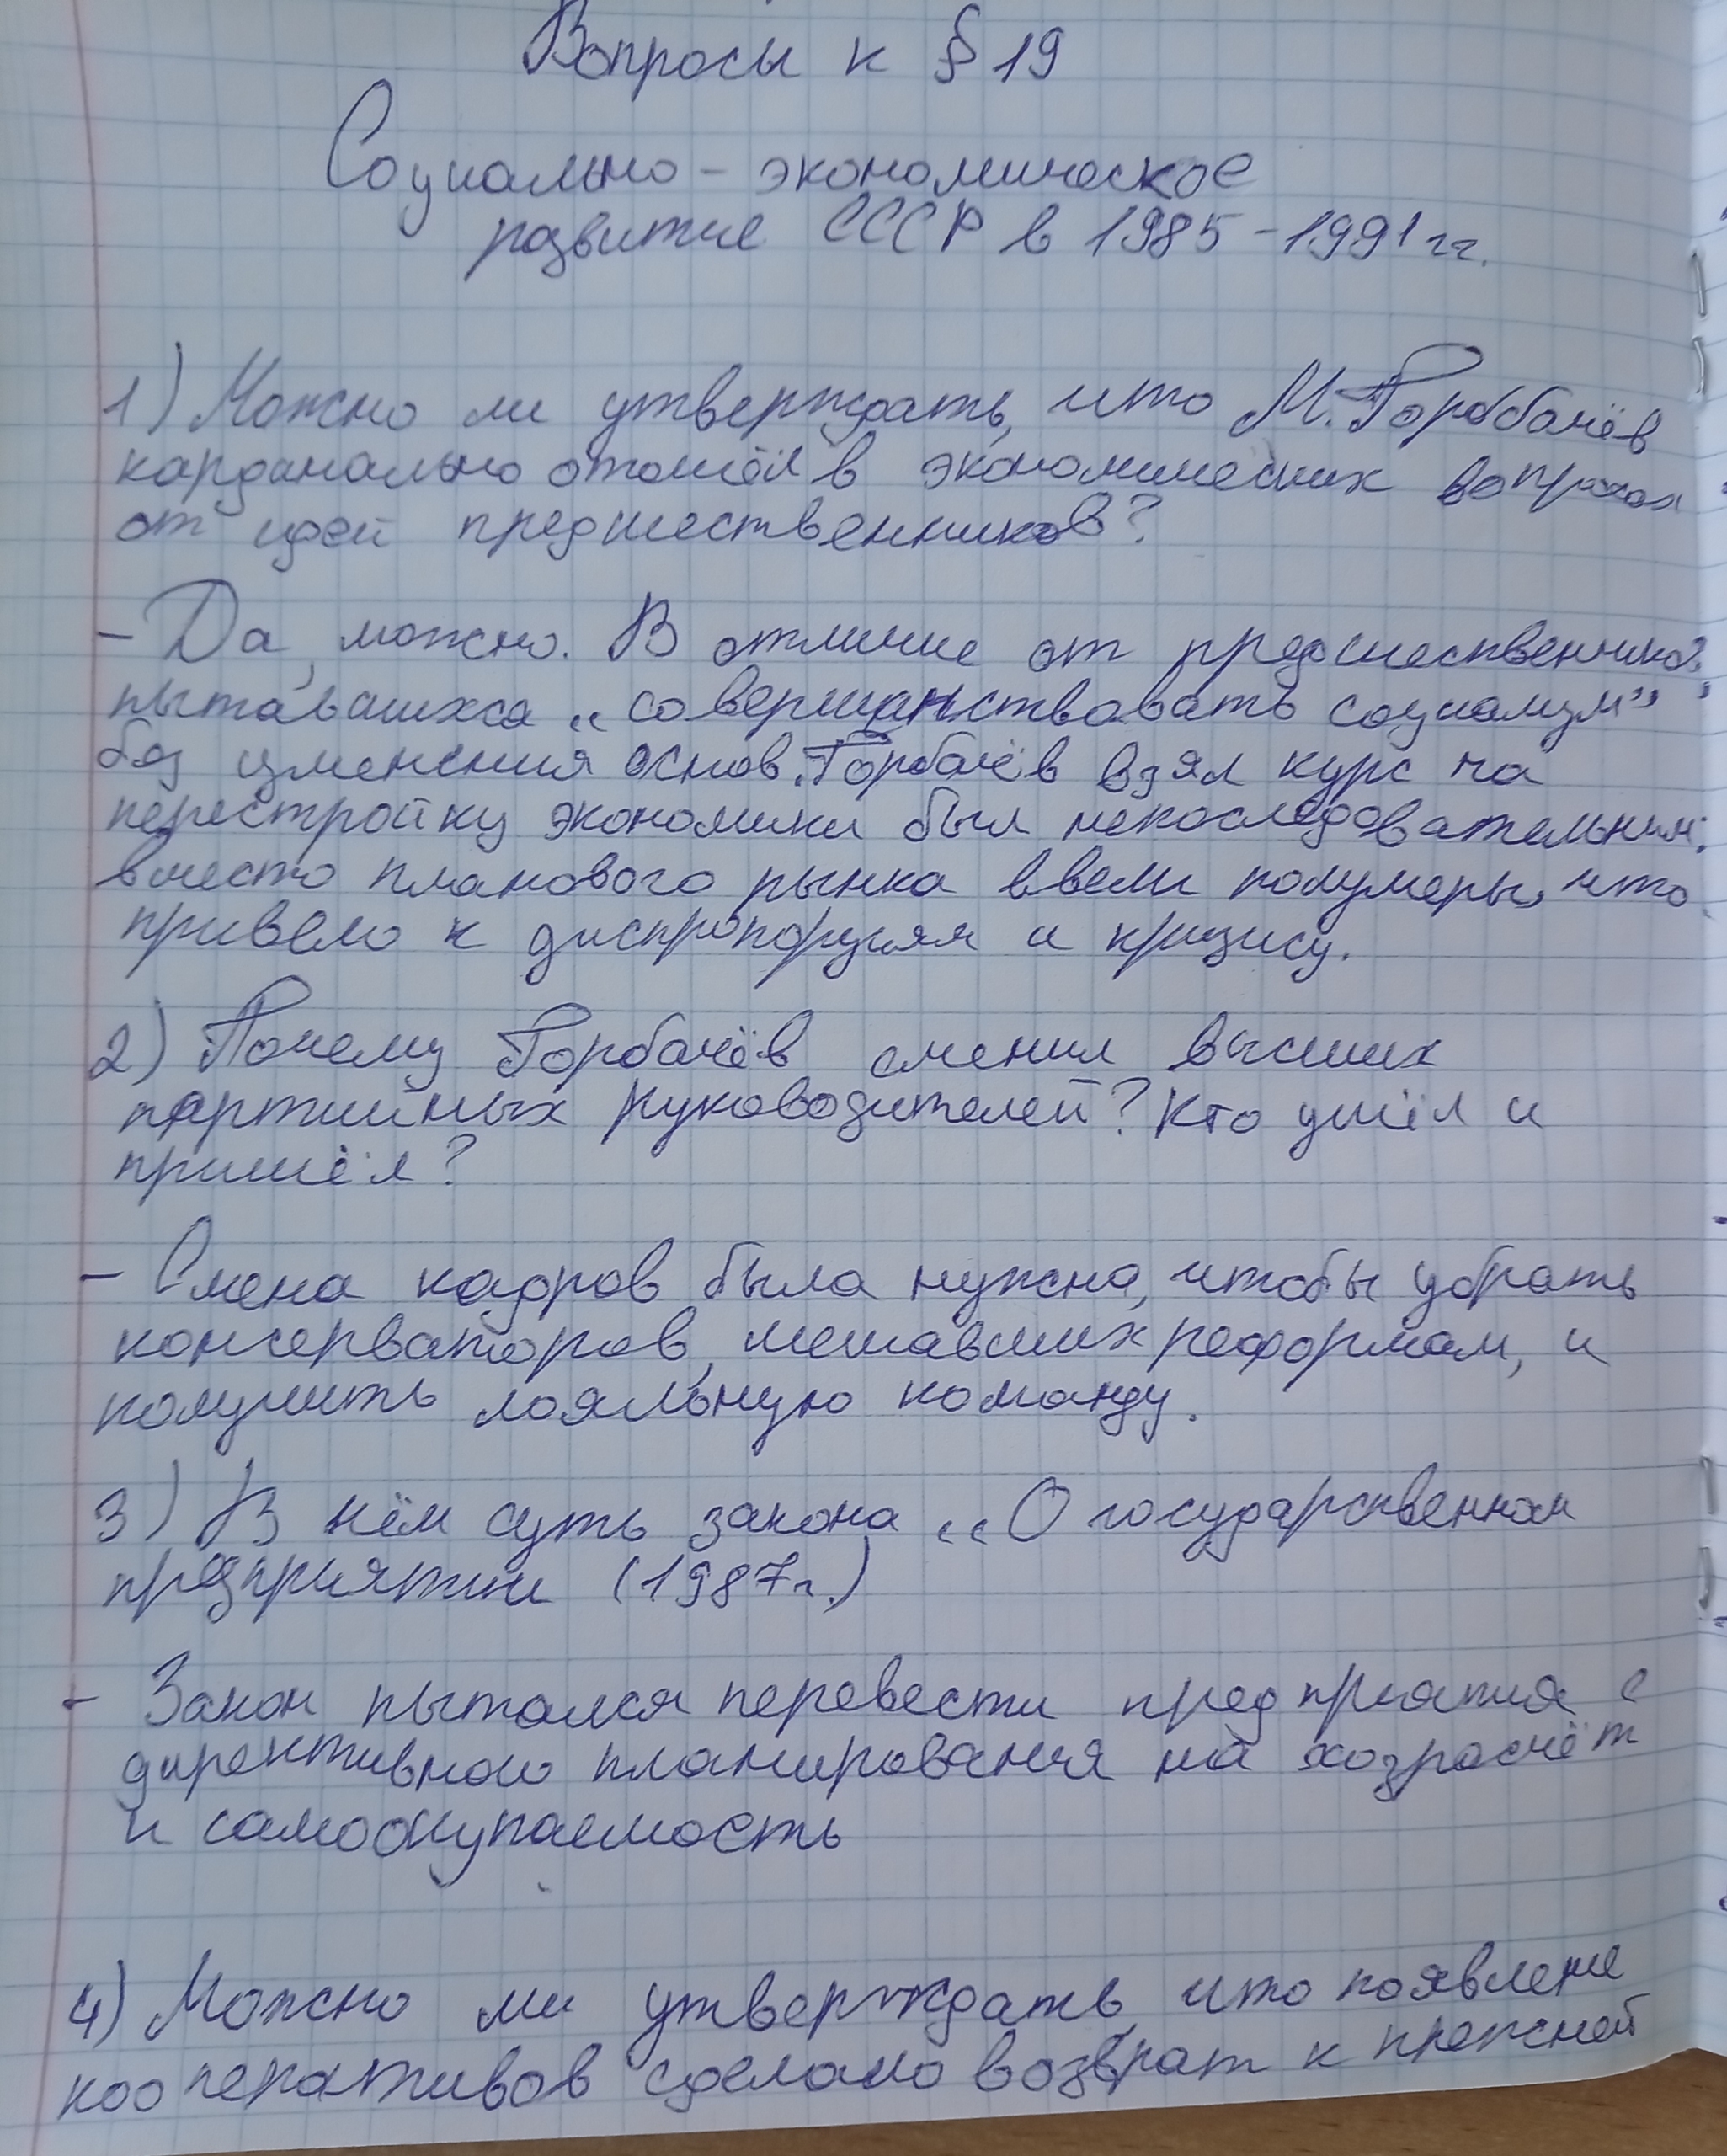 Вопросы к § 19
Социально-экономическое
развитие СССР в 1985-1991 гг.
1) Можно ли утверждать, что М. Горбачёв
кардинально отошёл в экономических вопросах
от идей предшественников?
- Да, можно. В отличие от предшественников,
пытавшихся „совершанствовать социализм”
без изменения основ. Горбачёв взял курс на
перестройку экономики был непоследовательным:
вместо планового рынка ввели полумеры, что
привело к диспропорциям и кризису.
2) Почему Горбачёв сменил высших
партийных руководителей? Кто ушёл и
пришёл?
- Смена кадров была нужна, чтобы убрать
консерваторов, мешавших реформам, и
получить лояльную команду.
3) В чём суть закона „О государственном
предприятии (1987г.)
- Закон пытался перевести предприятия с
директивного планирования на хозрасчёт
и самоокупаемость
4) Можно ли утверждать, что появлене
кооперативов сделало возврат к прежней